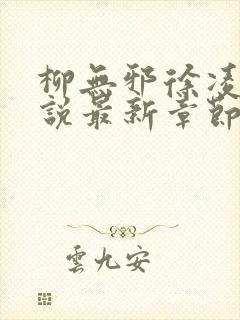 柳無邪徐凌
說最新章節
雲九安